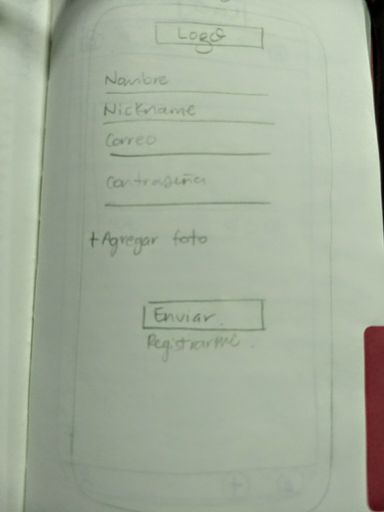 Logo
Nombre
Nickname
Correo
Contraseña
+Agregar foto
Enviar
Registrarme.